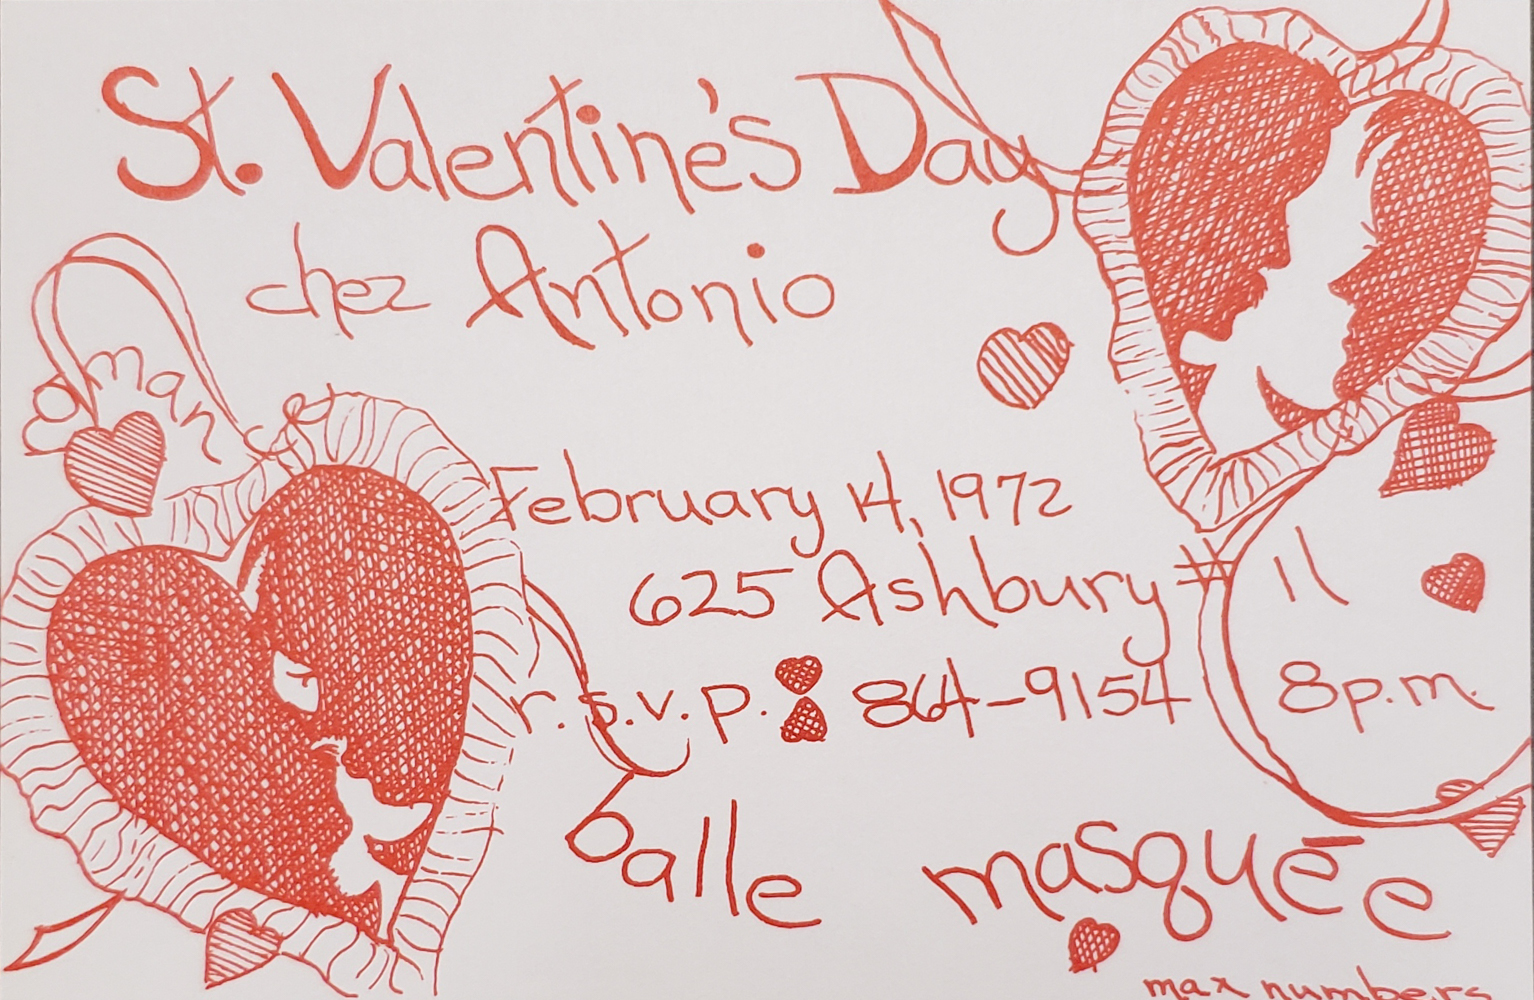 St. Valentine's Day
chez Antonio
February 14, 1972
625 Ashbury # 11
r.s.v.p. 864-9154 8p.m.
balle masquēe
max numbers